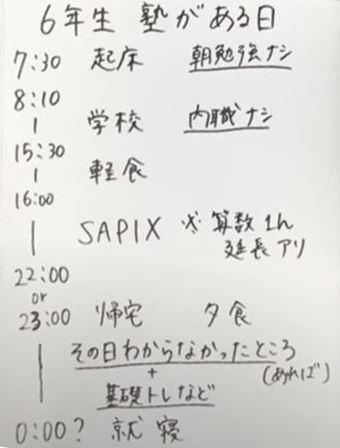 6年生 塾がある日
7:30 起床 朝勉強ナシ
8:10
|
学校 内職ナシ
15:30
| 軽食
16:00
| SAPIX ※算数1h
延長アリ
22:00
or
23:00 帰宅 夕食
| その日わからなかったところ
+ (あれば)
基礎トレなど
0:00? 就寝